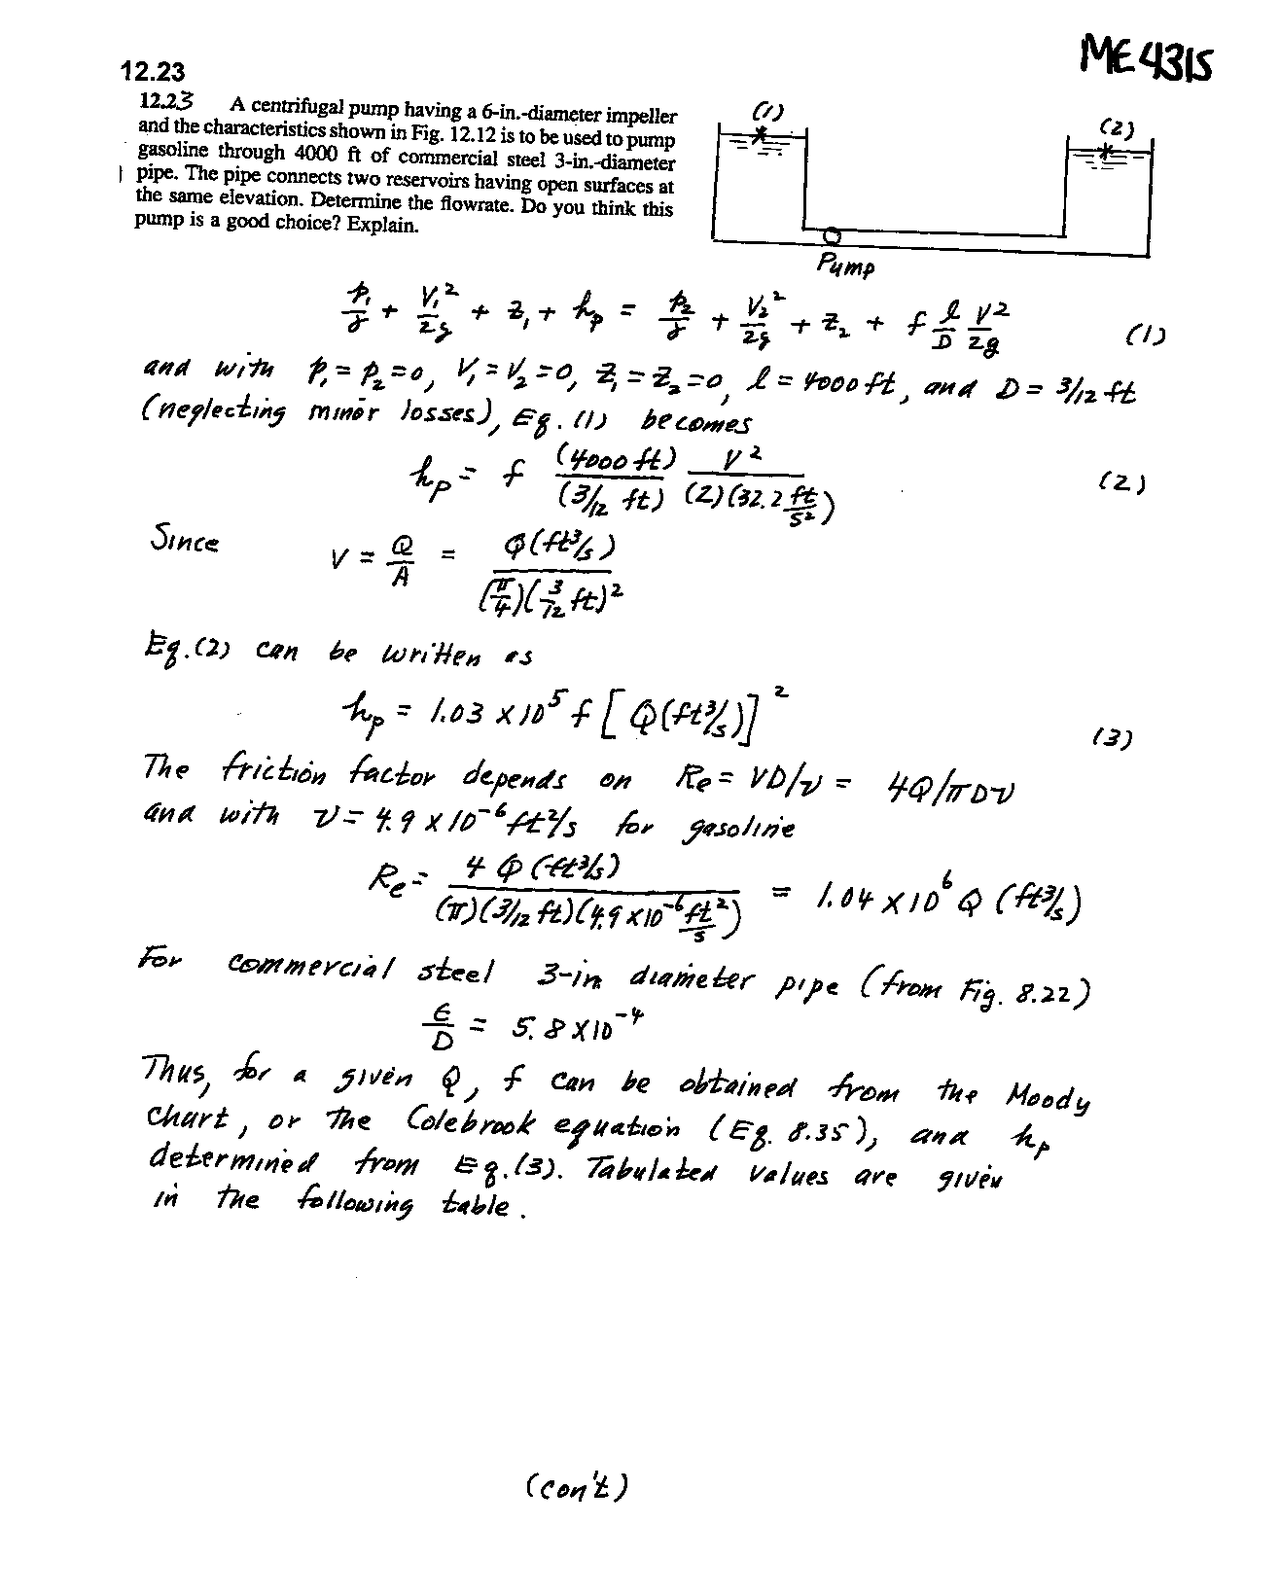 ME 4315
12.23
12.23 A centrifugal pump having a 6-in.-diameter impeller
and the characteristics shown in Fig. 12.12 is to be used to pump
gasoline through 4000 ft of commercial steel 3-in.-diameter
pipe. The pipe connects two reservoirs having open surfaces at
the same elevation. Determine the flowrate. Do you think this
pump is a good choice? Explain.
(1)
(2)
Pump
p₁/γ + V₁²/2g + z₁ + hₚ = p₂/γ + V₂²/2g + z₂ + f l/D V²/2g (1)
and with p₁ = p₂ = 0, V₁ = V₂ = 0, z₁ = z₂ = 0, l = 4000 ft, and D = 3/12 ft
(neglecting minor losses), Eq. (1) becomes
hₚ = f (4000 ft)/(3/12 ft) V²/(2)(32.2 ft/s²) (2)
Since V = Q/A = Q(ft³/s)/(π/4)(3/12 ft)²
Eq. (2) can be written as
hₚ = 1.03 × 10⁵ f [Q(ft³/s)]² (3)
The friction factor depends on Re = VD/ν = 4Q/πDν
and with ν = 4.9 × 10⁻⁶ ft²/s for gasoline
Re = 4 Q (ft³/s)/(π)(3/12 ft)(4.9 × 10⁻⁶ ft²/s) = 1.04 × 10⁶ Q (ft³/s)
For commercial steel 3-in diameter pipe (from Fig. 8.22)
ε/D = 5.8 × 10⁻⁴
Thus, for a given Q, f can be obtained from the Moody
chart, or the Colebrook equation (Eq. 8.35), and hₚ
determined from Eq. (3). Tabulated values are given
in the following table.
(con't)